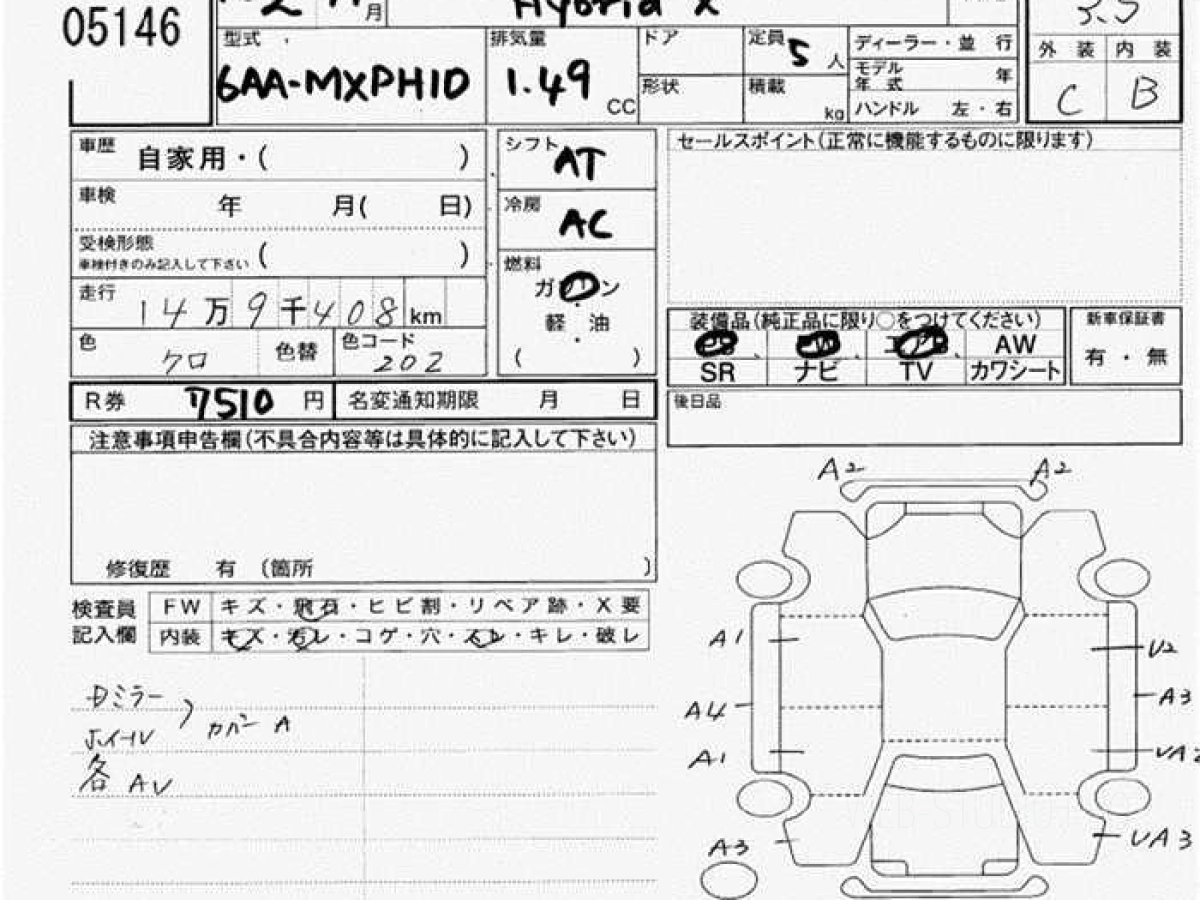 05146
2 月 Hybrid X 3.5
型式 6AA-MXPH10 排気量 1.49 CC ドア 形状 定員 5 人 積載 kg ディーラー・並 行 モデル年式 年 ハンドル 左・右 外 装 内 装 C B
車歴 自家用・( )
車検 年 月( 日)
受検形態 車検付きのみ記入して下さい ( )
走行 14万9千408km
色 クロ 色替 色コード 202
シフト AT
冷房 AC
燃料
ガソリン
軽 油
( )
セールスポイント(正常に機能するものに限ります)
装備品(純正品に限り○をつけてください)
PS PW エアB AW
SR ナビ TV カワシート
新車保証書
有・無
R券 7510 円 名変通知期限 月 日
後日品
注意事項申告欄(不具合内容等は具体的に記入して下さい)
修復歴 有 (箇所 )
検査員 FW キズ・飛石・ヒビ割・リペア跡・X要
記入欄 内装 キズ・汚レ・コゲ・穴・スレ・キレ・破レ
Dミラー
ホイール カバー A
各 AU
A2 A2
A1 U2
A4 A3
A1 UA2
A3 UA3